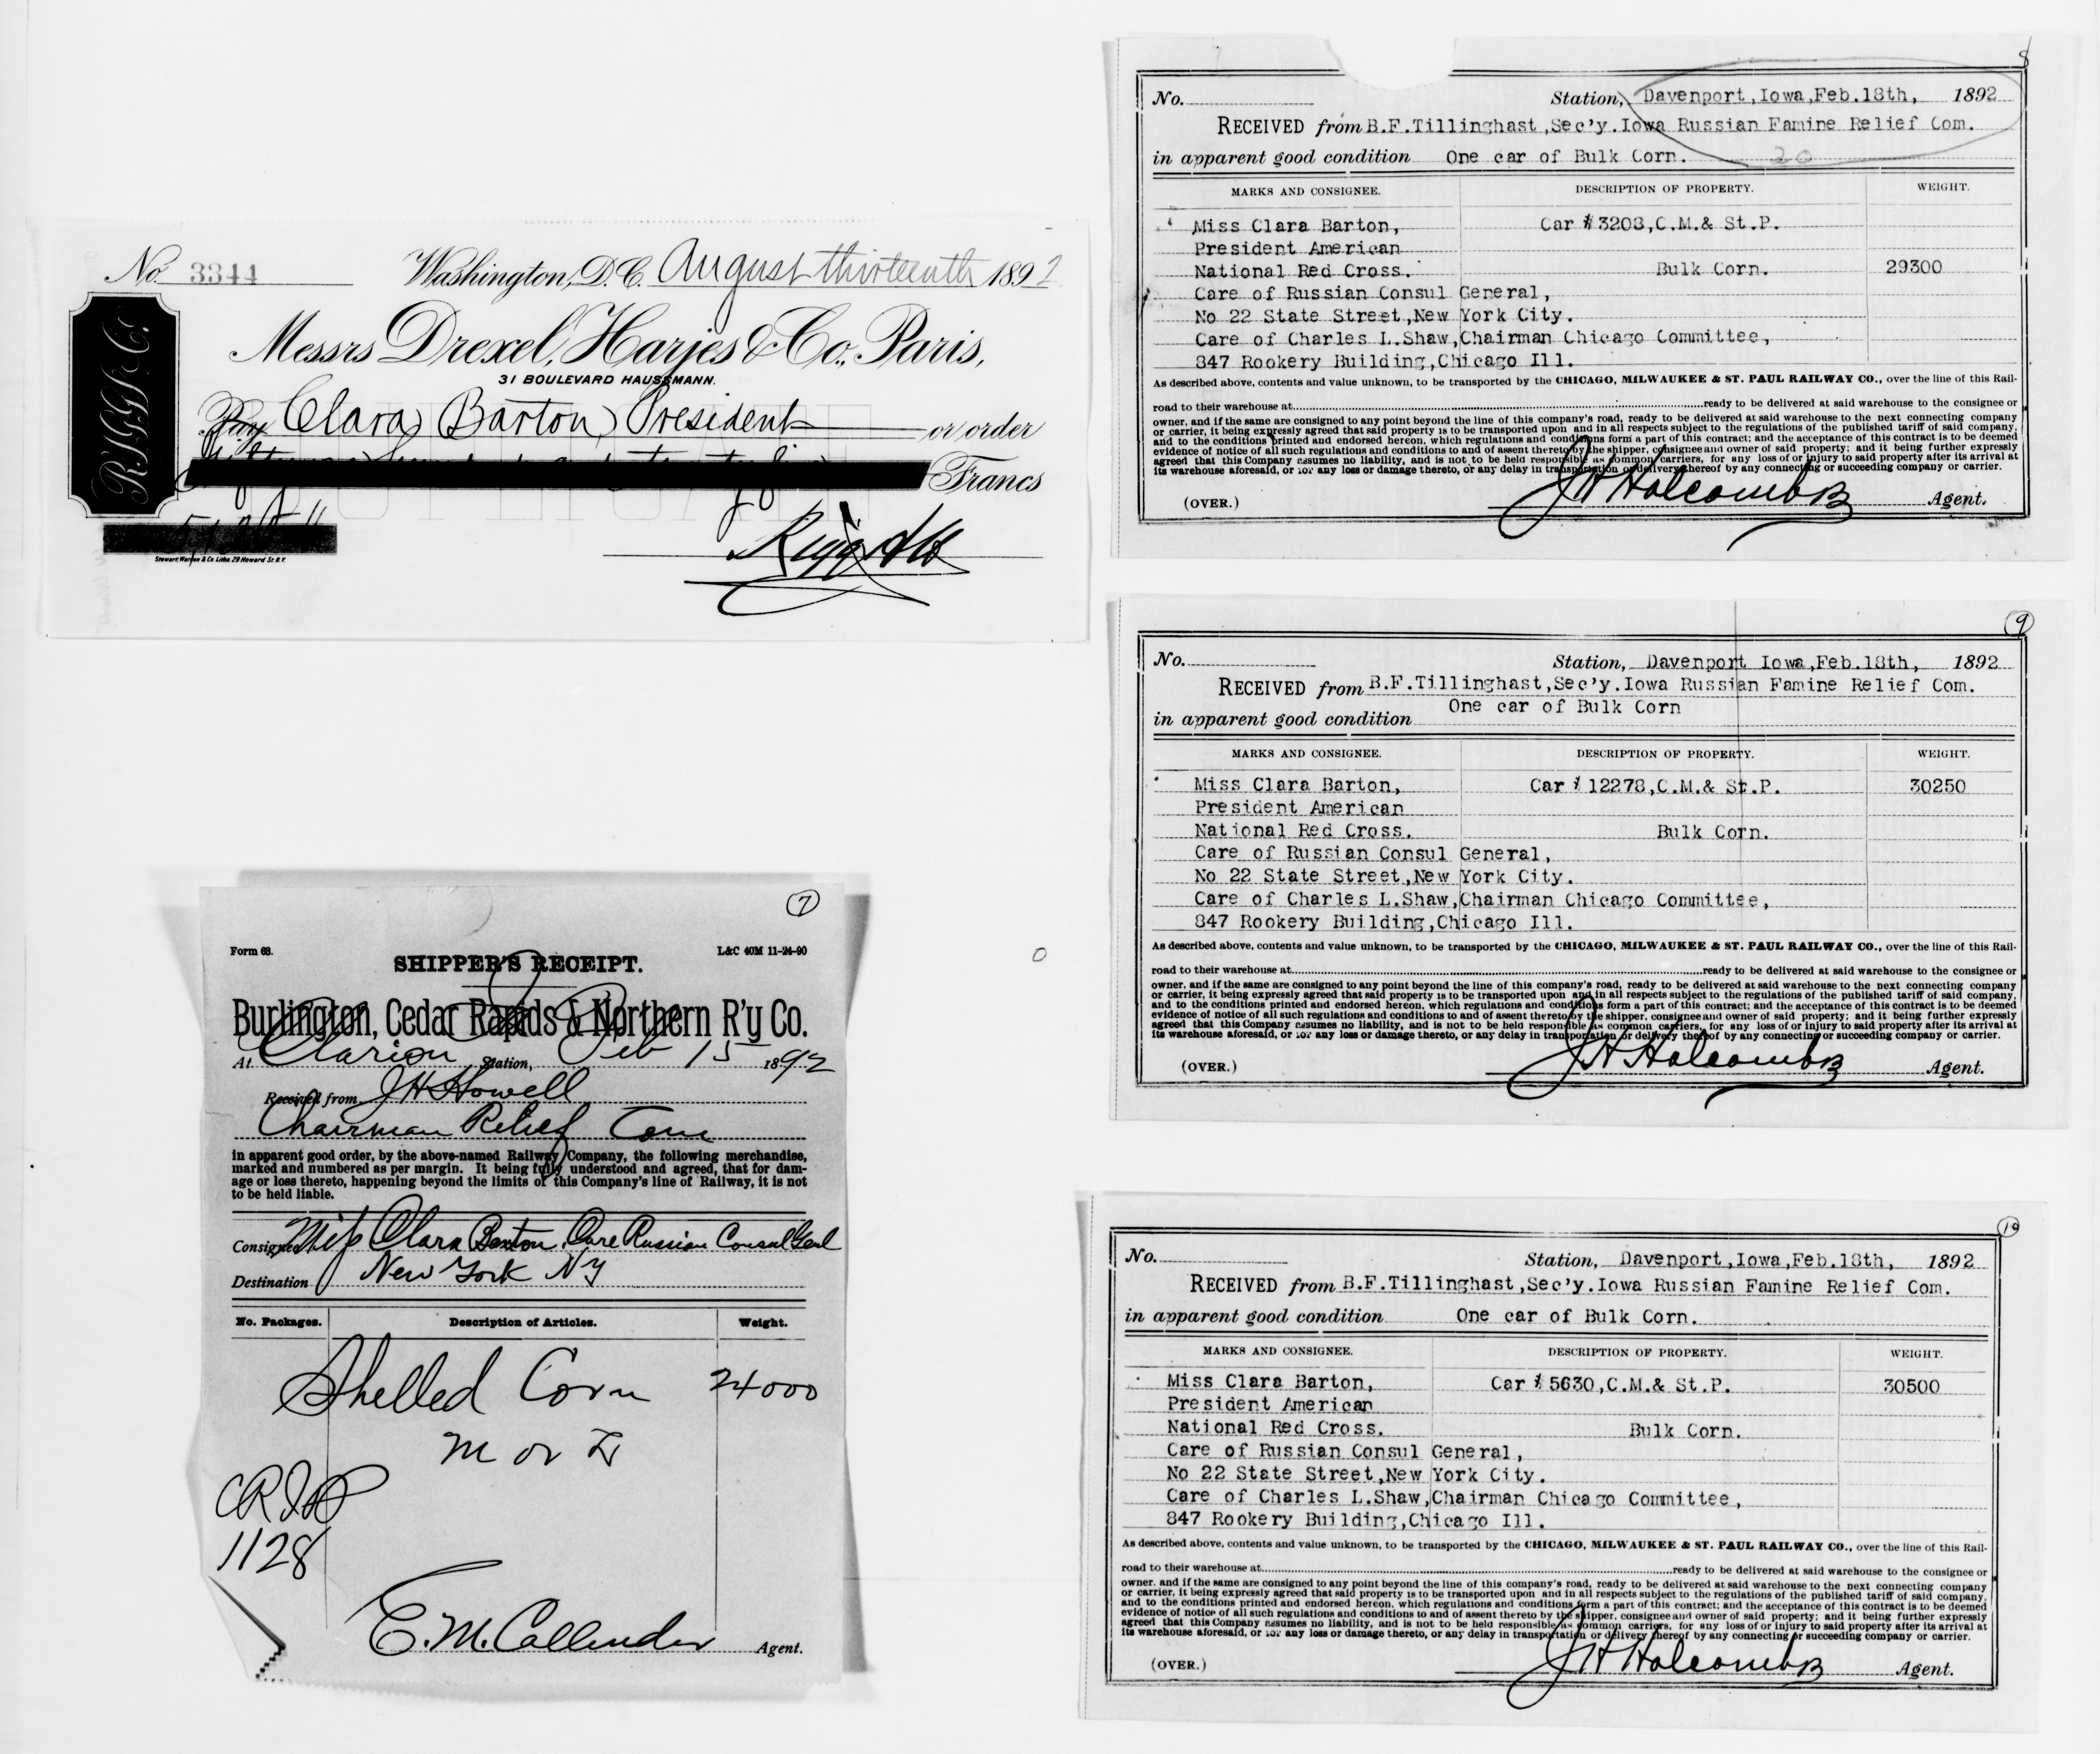 No. 3344 Washington, D.C. August thirteenth 1892
RIGGS & Co.
Messrs Drexel, Harjes & Co., Paris,
31 BOULEVARD HAUSSMANN.
Pay Clara Barton, President or order
Francs
Riggs & Co
Stewart, Warren & Co. Litho. 29 Howard St. N.Y.
7
Form 68. L&C 40M 11-24-90
SHIPPER'S RECEIPT.
Burlington, Cedar Rapids & Northern R'y Co.
At Clarion Station, Feb 15 1892
Received from J H Howell
Chairman Relief Com
in apparent good order, by the above-named Railway Company, the following merchandise,
marked and numbered as per margin. It being fully understood and agreed, that for dam-
age or loss thereto, happening beyond the limits of this Company's line of Railway, it is not
to be held liable.
Consignee Miss Clara Barton, Care Russian Consul Genl
Destination New York NY
No. Packages. Description of Articles. Weight.
Shelled Corn 24000
M or L
CRI&P
1128
E. M. Callender Agent.
8
No. Station, Davenport,Iowa,Feb.18th, 1892
RECEIVED from B.F.Tillinghast,Sec'y.Iowa Russian Famine Relief Com.
in apparent good condition One car of Bulk Corn. 20
MARKS AND CONSIGNEE. DESCRIPTION OF PROPERTY. WEIGHT.
Miss Clara Barton, Car #3208,C.M.& St.P.
President American
National Red Cross. Bulk Corn. 29300
Care of Russian Consul General,
No 22 State Street,New York City.
Care of Charles L.Shaw,Chairman Chicago Committee,
847 Rookery Building,Chicago Ill.
As described above, contents and value unknown, to be transported by the CHICAGO, MILWAUKEE & ST. PAUL RAILWAY CO., over the line of this Rail-
road to their warehouse at ready to be delivered at said warehouse to the consignee or
owner, and if the same are consigned to any point beyond the line of this company's road, ready to be delivered at said warehouse to the next connecting company
or carrier, it being expressly agreed that said property is to be transported upon and in all respects subject to the regulations of the published tariff of said company,
and to the conditions printed and endorsed hereon, which regulations and conditions form a part of this contract; and the acceptance of this contract is to be deemed
evidence of notice of all such regulations and conditions to and of assent thereto by the shipper, consignee and owner of said property; and it being further expressly
agreed that this Company assumes no liability, and is not to be held responsible as common carriers, for any loss of or injury to said property after its arrival at
its warehouse aforesaid, or for any loss or damage thereto, or any delay in transportation or delivery thereof by any connecting or succeeding company or carrier.
(OVER.) J H Holcomb Agent.
9
No. Station, Davenport Iowa,Feb.18th, 1892
RECEIVED from B.F.Tillinghast,Sec'y.Iowa Russian Famine Relief Com.
in apparent good condition One car of Bulk Corn
MARKS AND CONSIGNEE. DESCRIPTION OF PROPERTY. WEIGHT.
Miss Clara Barton, Car # 12278,C.M.& St.P. 30250
President American
National Red Cross. Bulk Corn.
Care of Russian Consul General,
No 22 State Street,New York City.
Care of Charles L.Shaw,Chairman Chicago Committee,
847 Rookery Building,Chicago Ill.
As described above, contents and value unknown, to be transported by the CHICAGO, MILWAUKEE & ST. PAUL RAILWAY CO., over the line of this Rail-
road to their warehouse at ready to be delivered at said warehouse to the consignee or
owner, and if the same are consigned to any point beyond the line of this company's road, ready to be delivered at said warehouse to the next connecting company
or carrier, it being expressly agreed that said property is to be transported upon and in all respects subject to the regulations of the published tariff of said company,
and to the conditions printed and endorsed hereon, which regulations and conditions form a part of this contract; and the acceptance of this contract is to be deemed
evidence of notice of all such regulations and conditions to and of assent thereto by the shipper, consignee and owner of said property; and it being further expressly
agreed that this Company assumes no liability, and is not to be held responsible as common carriers, for any loss of or injury to said property after its arrival at
its warehouse aforesaid, or for any loss or damage thereto, or any delay in transportation or delivery thereof by any connecting or succeeding company or carrier.
(OVER.) J H Holcomb Agent.
10
No. Station, Davenport,Iowa,Feb.18th, 1892
RECEIVED from B.F.Tillinghast,Sec'y.Iowa Russian Famine Relief Com.
in apparent good condition One car of Bulk Corn.
MARKS AND CONSIGNEE. DESCRIPTION OF PROPERTY. WEIGHT.
Miss Clara Barton, Car # 5630,C.M.& St.P. 30500
President American
National Red Cross. Bulk Corn.
Care of Russian Consul General,
No 22 State Street,New York City.
Care of Charles L.Shaw,Chairman Chicago Committee,
847 Rookery Building,Chicago Ill.
As described above, contents and value unknown, to be transported by the CHICAGO, MILWAUKEE & ST. PAUL RAILWAY CO., over the line of this Rail-
road to their warehouse at ready to be delivered at said warehouse to the consignee or
owner, and if the same are consigned to any point beyond the line of this company's road, ready to be delivered at said warehouse to the next connecting company
or carrier, it being expressly agreed that said property is to be transported upon and in all respects subject to the regulations of the published tariff of said company,
and to the conditions printed and endorsed hereon, which regulations and conditions form a part of this contract; and the acceptance of this contract is to be deemed
evidence of notice of all such regulations and conditions to and of assent thereto by the shipper, consignee and owner of said property; and it being further expressly
agreed that this Company assumes no liability, and is not to be held responsible as common carriers, for any loss of or injury to said property after its arrival at
its warehouse aforesaid, or for any loss or damage thereto, or any delay in transportation or delivery thereof by any connecting or succeeding company or carrier.
(OVER.) J H Holcomb Agent.